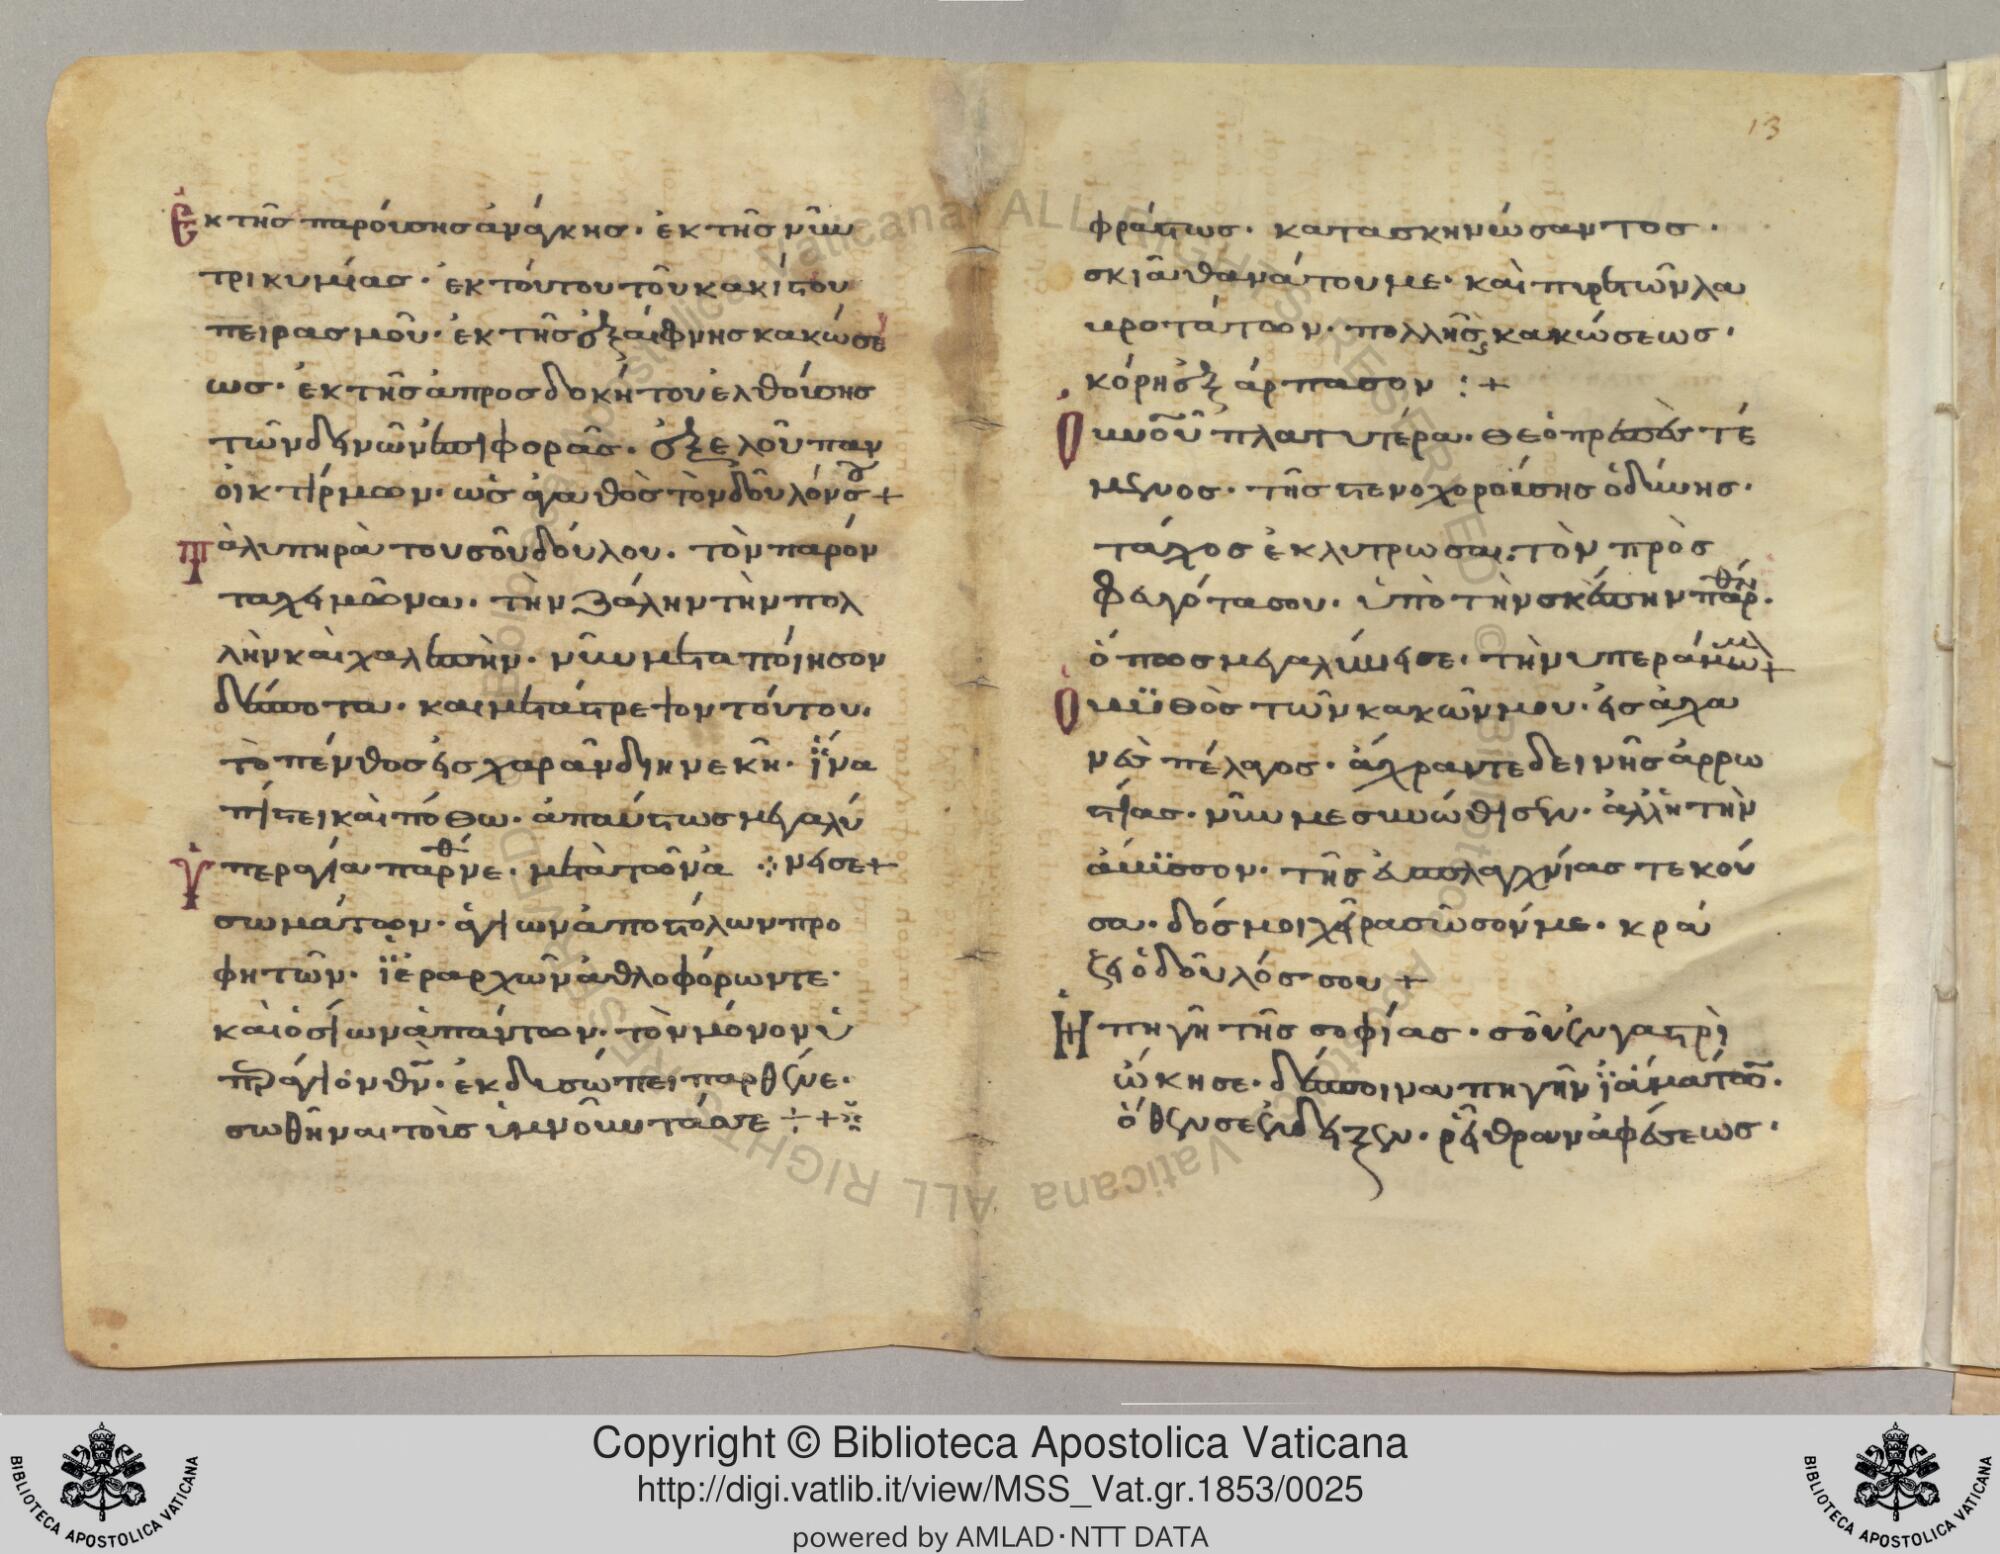 Ἐκ τῆς παρούσης ἀνάγκης· ἐκ τῆς νῦν
τρικυμίας· ἐκ τούτου τοῦ κακίστου
πειρασμοῦ· ἐκ τῆς ἐξαίφνης κακώσε
ως· ἐκ τῆς ἀπροσδοκήτου ἐλθούσης
τῶν δεινῶν ἐπιφορᾶς· ἐξελοῦ παν
οικτίρμων· ὡς ἀγαθὸς τὸν δοῦλόν σου +
Τὰ λυπηρὰ του σοῦ δούλου· τὸν παρόν
τα χειμῶνα· τὴν ζάλην τὴν πολ
λὴν καὶ χαλεπὴν· νῦν μεταποίησον
δέσποτα· και μετάστρεψον τούτου·
τὸ πένθος εἰς χαρᾶν διηνεκῆ· ἵνα
πίστει καὶ πόθω· ἀπαύστως μεγαλύ
Ὑπεραγία παρθένε· μετὰ τῶν ἀ ⁘ νει σε +
σωμάτων· ἁγίων ἀποστόλων προ
φητῶν· ἱεραρχῶν ἀθλοφόρων τε·
καὶ ὁσίων ἁπάντων· τὸν μόνον ὑ
περάγιον θν· ἐκδυσώπει παρθένε·
σωθῆναι τοὶς ὑμνοῦντάς σε ÷ +
13
φράστως· κατασκηνώσαντος·
σκιᾶ θανάτου με· καὶ πικροτῶν λα
βροτάτων· πολλῆς κακώσεως·
κόρη ἐξάρπασον : +
Ὀυνοῦ πλατυτέρα· θεόπρεπὲς τέ
μενος· τῆς στενοχορούσης ὀδύνης·
τάχος ἐκλυτρωσαι· τὸν πρὸς
φειγότα σου· ὑπὸ τὴν σκέπην παρθέν·
ὅπως μεγαλύνει σε· τὴν υπεράμωμ +
Ὁ βυθὸς τῶν κακῶν μου· εἰς ἀχα
νὲς πέλαγος· ἄχραντε δεινῆς ἀρρω
στίας· νῦν με συνώθισεν· ἀλλ' ἡ τὴν
ἄβυσσον· τῆς εὐσπλαγχνίας τεκοῦ
σα· δός μοι χεῖρα σῶσόν με· κρά
ζει ὁ δοῦλός σου +
Ἡ πηγὴ τῆς σοφίας· σοῦ ἐν γαστρὶ
ὤκησε· δέσποινα πηγὴν ἰαμάτων·
ὅθεν σε ἔδειξεν· ρεῖθραν ἀφέσεως·
Copyright © Biblioteca Apostolica Vaticana
http://digi.vatlib.it/view/MSS_Vat.gr.1853/0025
powered by AMLAD·NTT DATA
BIBLIOTECA APOSTOLICA VATICANA
BIBLIOTECA APOSTOLICA VATICANA